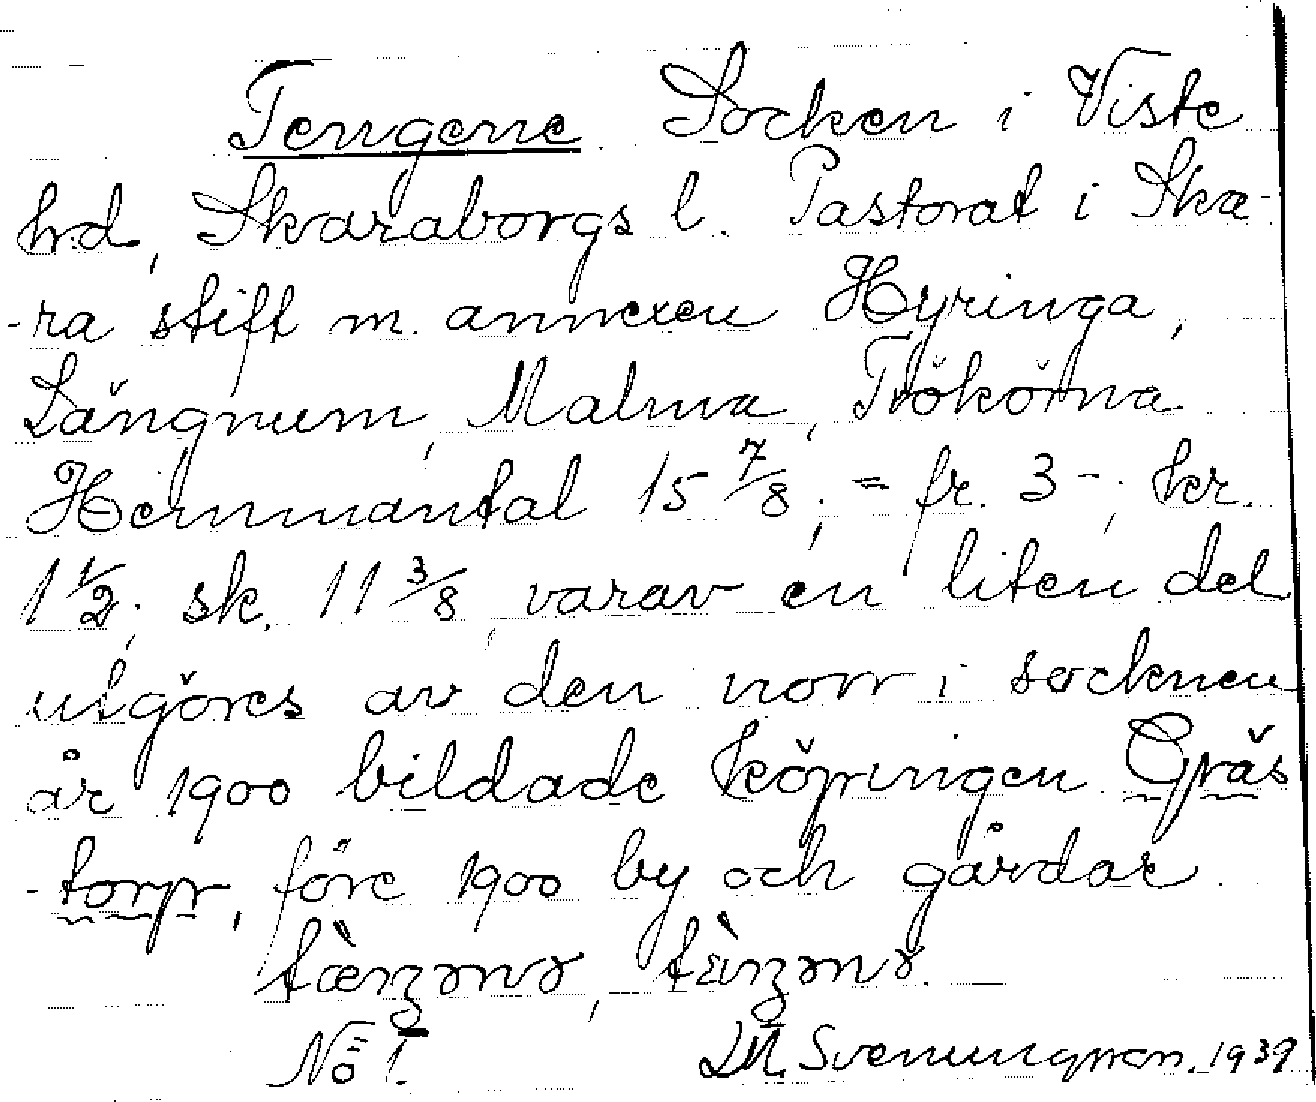 Tengene Socken i Viste
hd, Skaraborgs l. Pastorat i Ska-
-ra stift m. annexen Hyringa,
Längnum, Malma, Trökörna
Hemmantal 15 7/8; = fr. 3 -; kr.
1 1/2; sk. 11 3/8, varav en liten del
utgöres av den norr i socknen
år 1900 bildade köpingen Gräs
-torp, före 1900 by och gårdar.
No 1. 1939